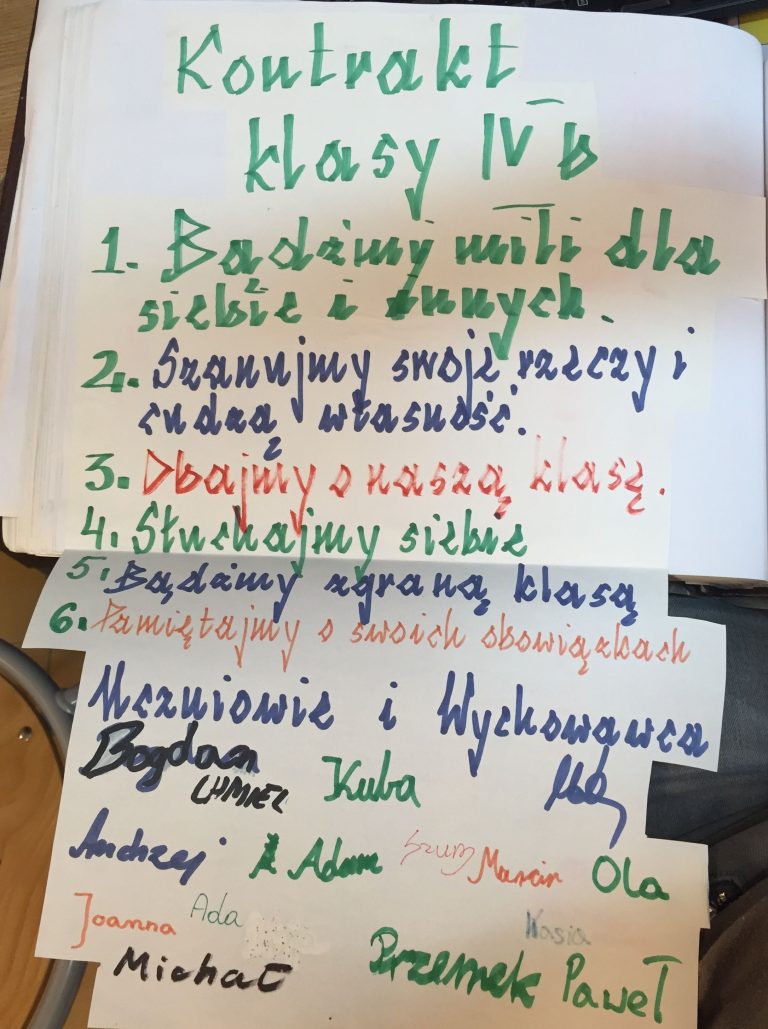 Kontrakt
klasy IV b
1. Bądźmy mili dla
siebie i innych.
2. Szanujmy swoje rzeczy i
cudzą własność.
3. Dbajmy o naszą klasę.
4. Słuchajmy siebie
5. Bądźmy zgraną klasą
6. Pamiętajmy o swoich obowiązkach
Uczniowie i Wychowawca
Bogdan
CHMIEL Kuba
Andrzej Adam Szum Marcin Ola
Joanna Ada Kasia
Michał Przemek Paweł